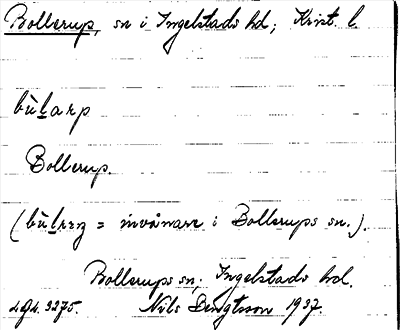 Bollerup, sn i Ingelstads hd; Krist. l.
bùlarp
Bollerup.
(bùlrez = invånare i Bollerups sn.).
Bollerups sn; Ingelstads hd.
Nils Bengtsson 1937.